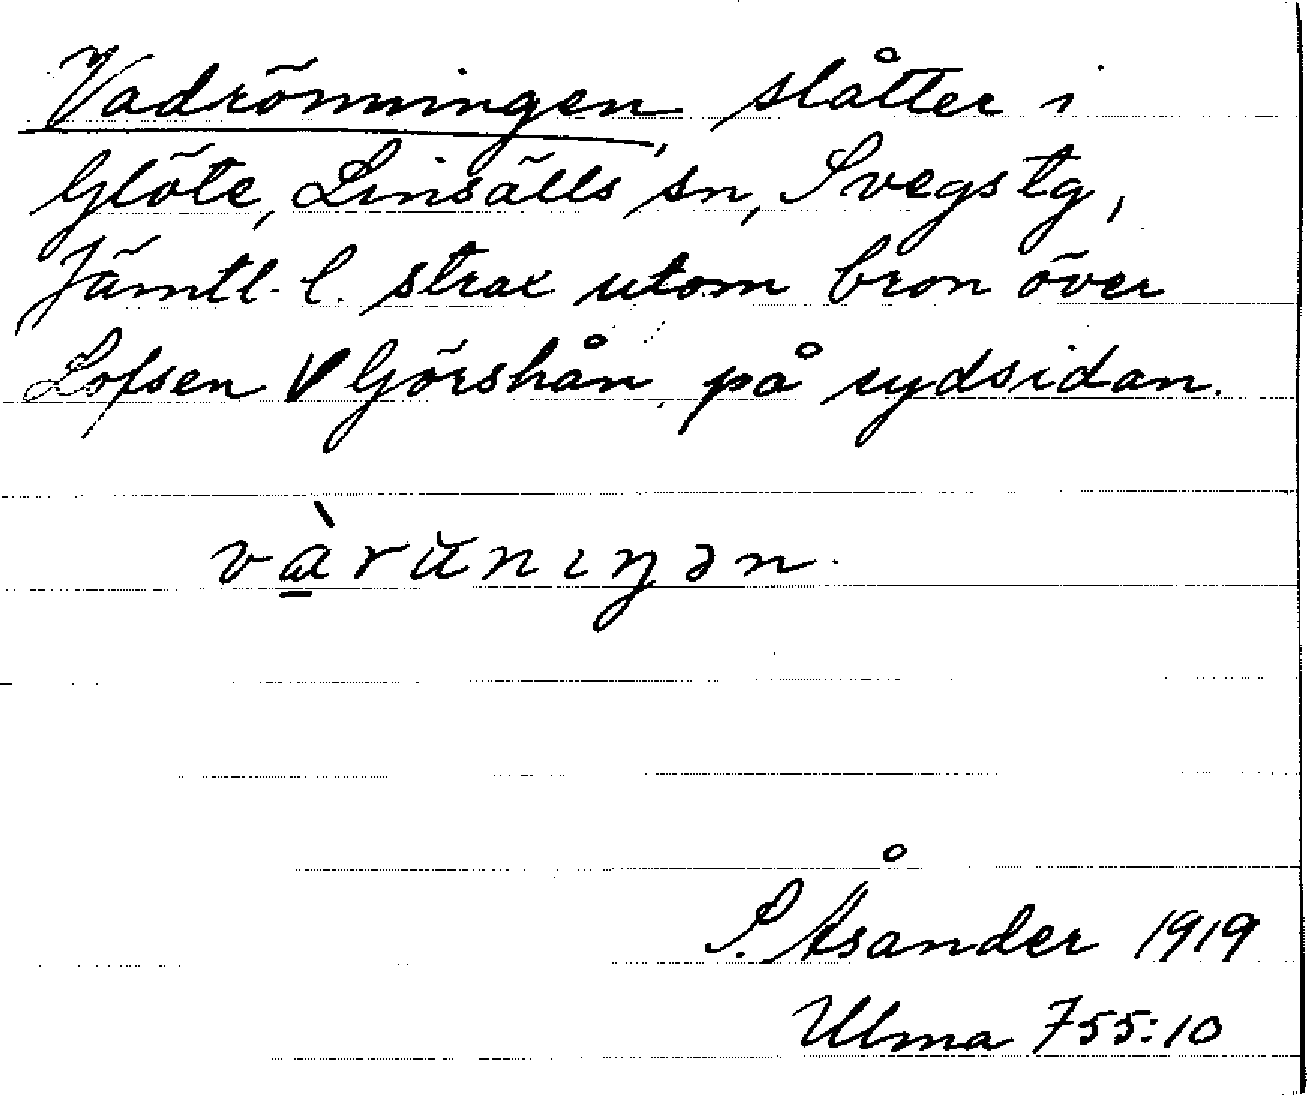 Vadrönningen, slåtter i
Glöte, Linsälls sn, Svegs tg,
Jämtl. l. strax utom bron över
Lofsen V Görshån, på sydsidan.
và̱rŭnɩŋən.
S. Åsander 1919
Ulma 755:10